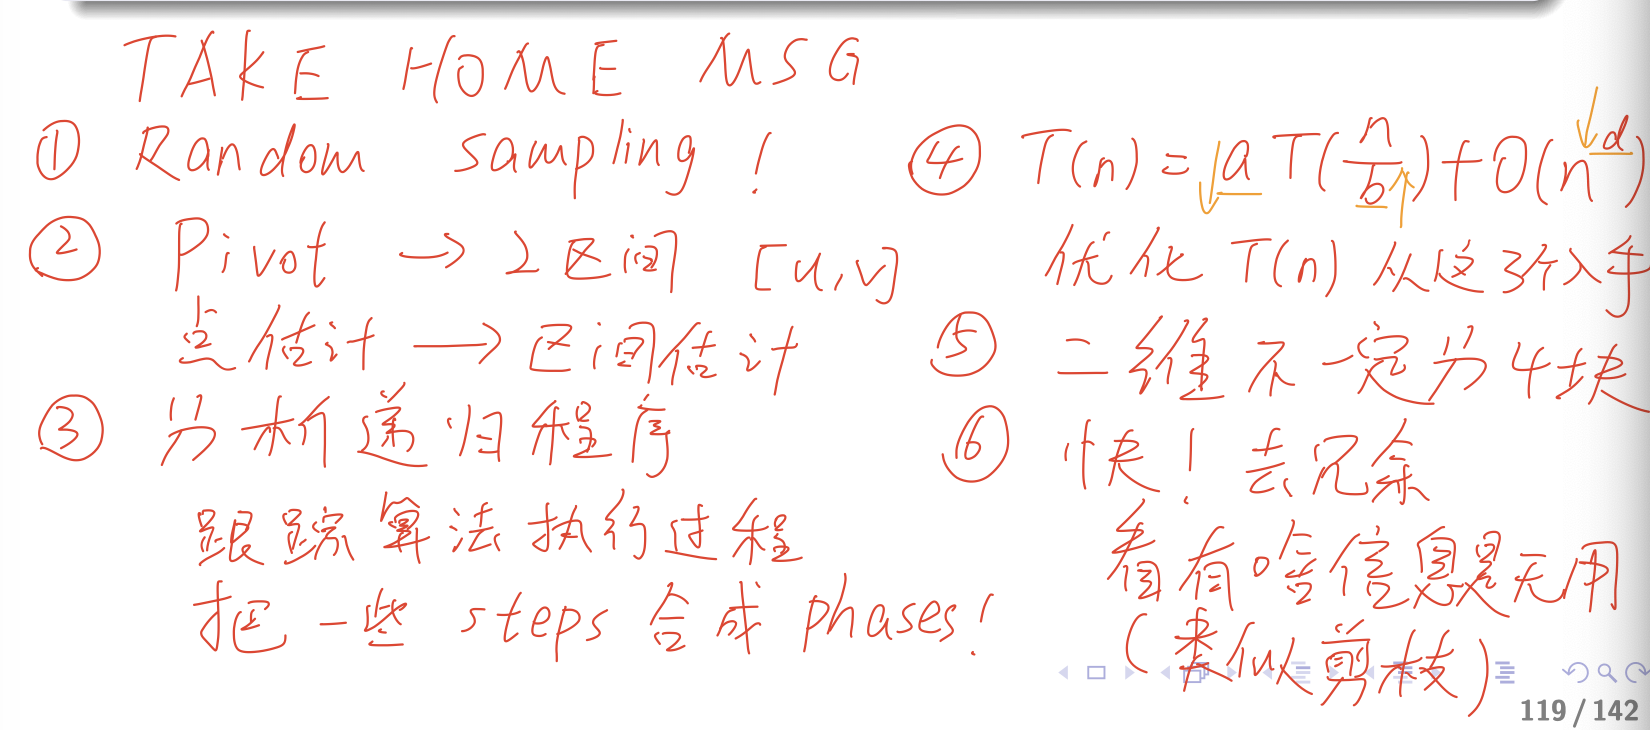 TAKE HOME MSG
① Random sampling!
② Pivot → 2区间 [u,v]
点估计 → 区间估计
③ 分析递归程序
跟踪算法执行过程
把一些 steps 合成 phases!
④ T(n) = a T(n/b) + O(n^d)
优化 T(n) 从这3个入手
⑤ 二维不一定分4块
⑥ 快! 去冗余
看有啥信息是无用
(类似剪枝)
119 / 142